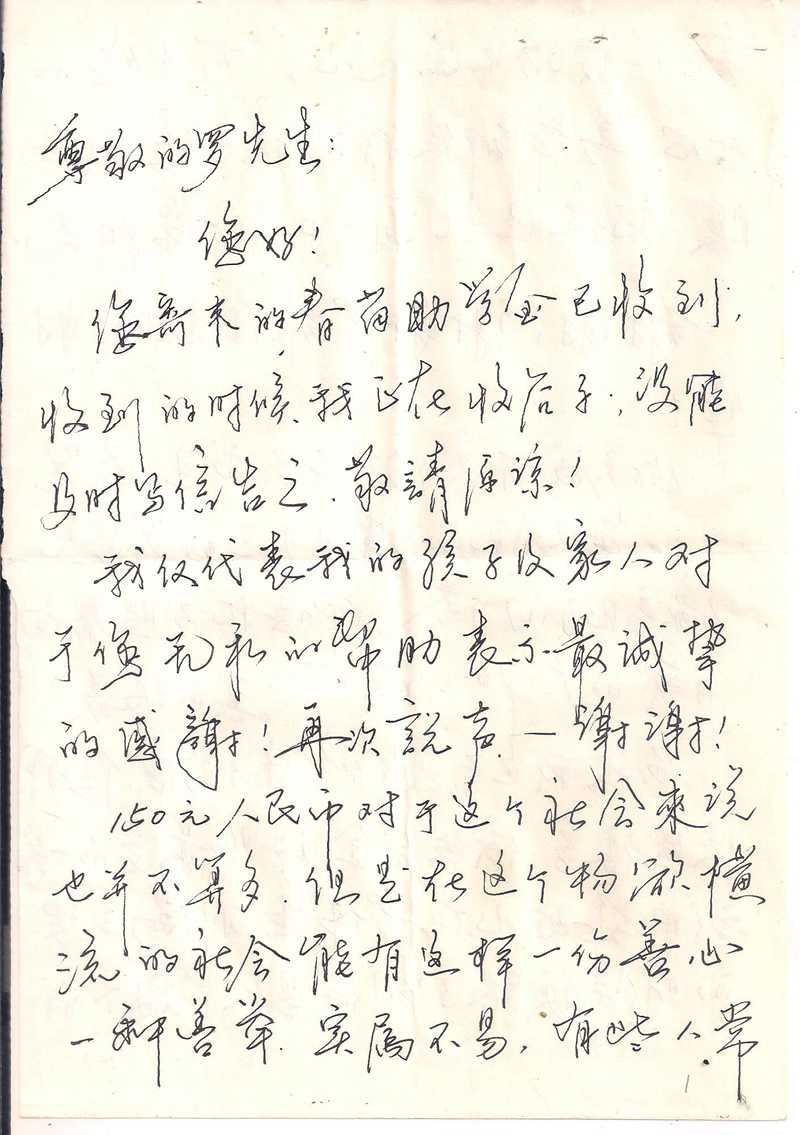 尊敬的罗先生：
您好！
您寄来的春苗助学金已收到，
收到的时候、我正在收谷子，没能
及时写信告之，敬請原谅！
我仅代表我的孩子及家人对
于您无私的帮助表示最誠挚
的感謝！再次說声—謝谢！
150元人民币对于这个社会来说
也并不算多，但是在这个物欲横
流的社会能有这样一份善心
一种善举，实属不易，有些人常
1